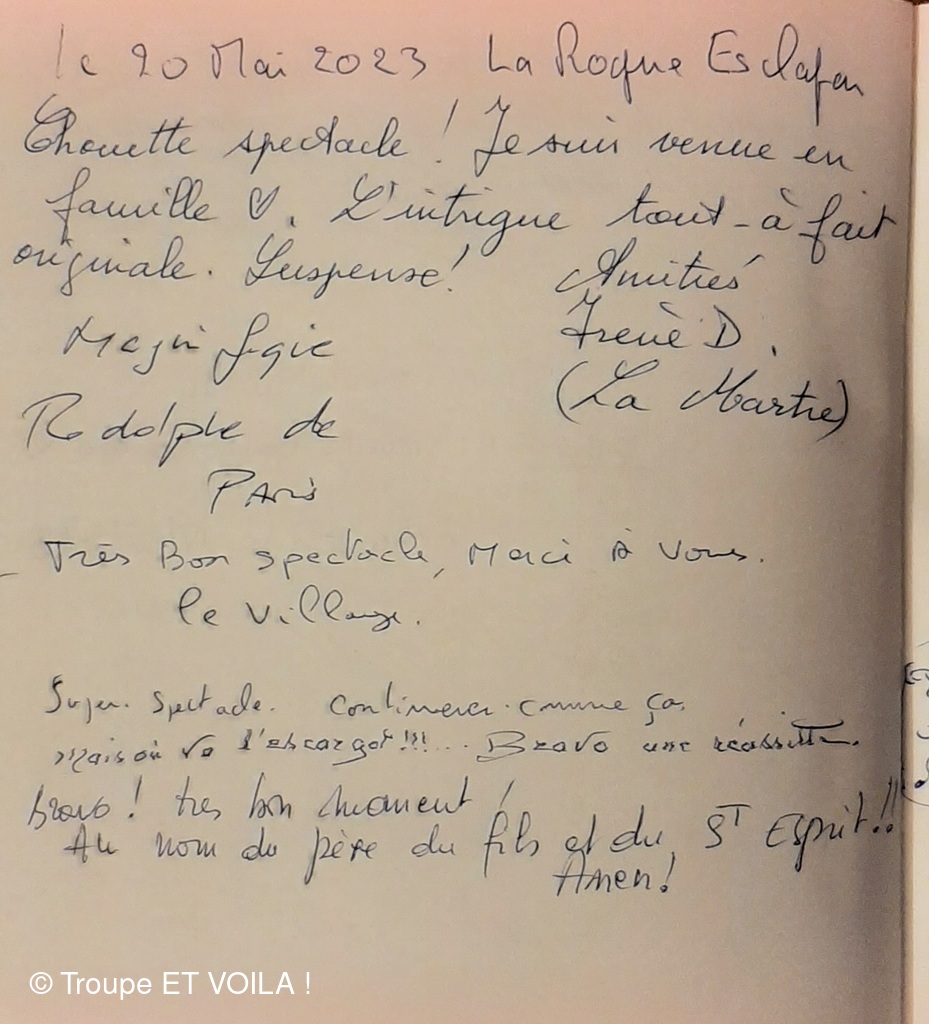 le 20 Mai 2023 La Roque Esclapon
Chouette spectacle ! Je suis venue en
famille ♡. L'intrigue tout-à fait
originale. Suspense !
Amitiés
Irène D.
(La Martre)
Magnifique
Rodolphe de
Paris
Très Bon spectacle, Merci à vous.
le village.
Super. Spectacle. Continuer. comme ça.
mais où va l'escargot !!! ... Bravo une réussitte.
bravo ! très bon moment !
Au nom du père du fils et du ST Esprit !!
Amen !
© Troupe ET VOILA !